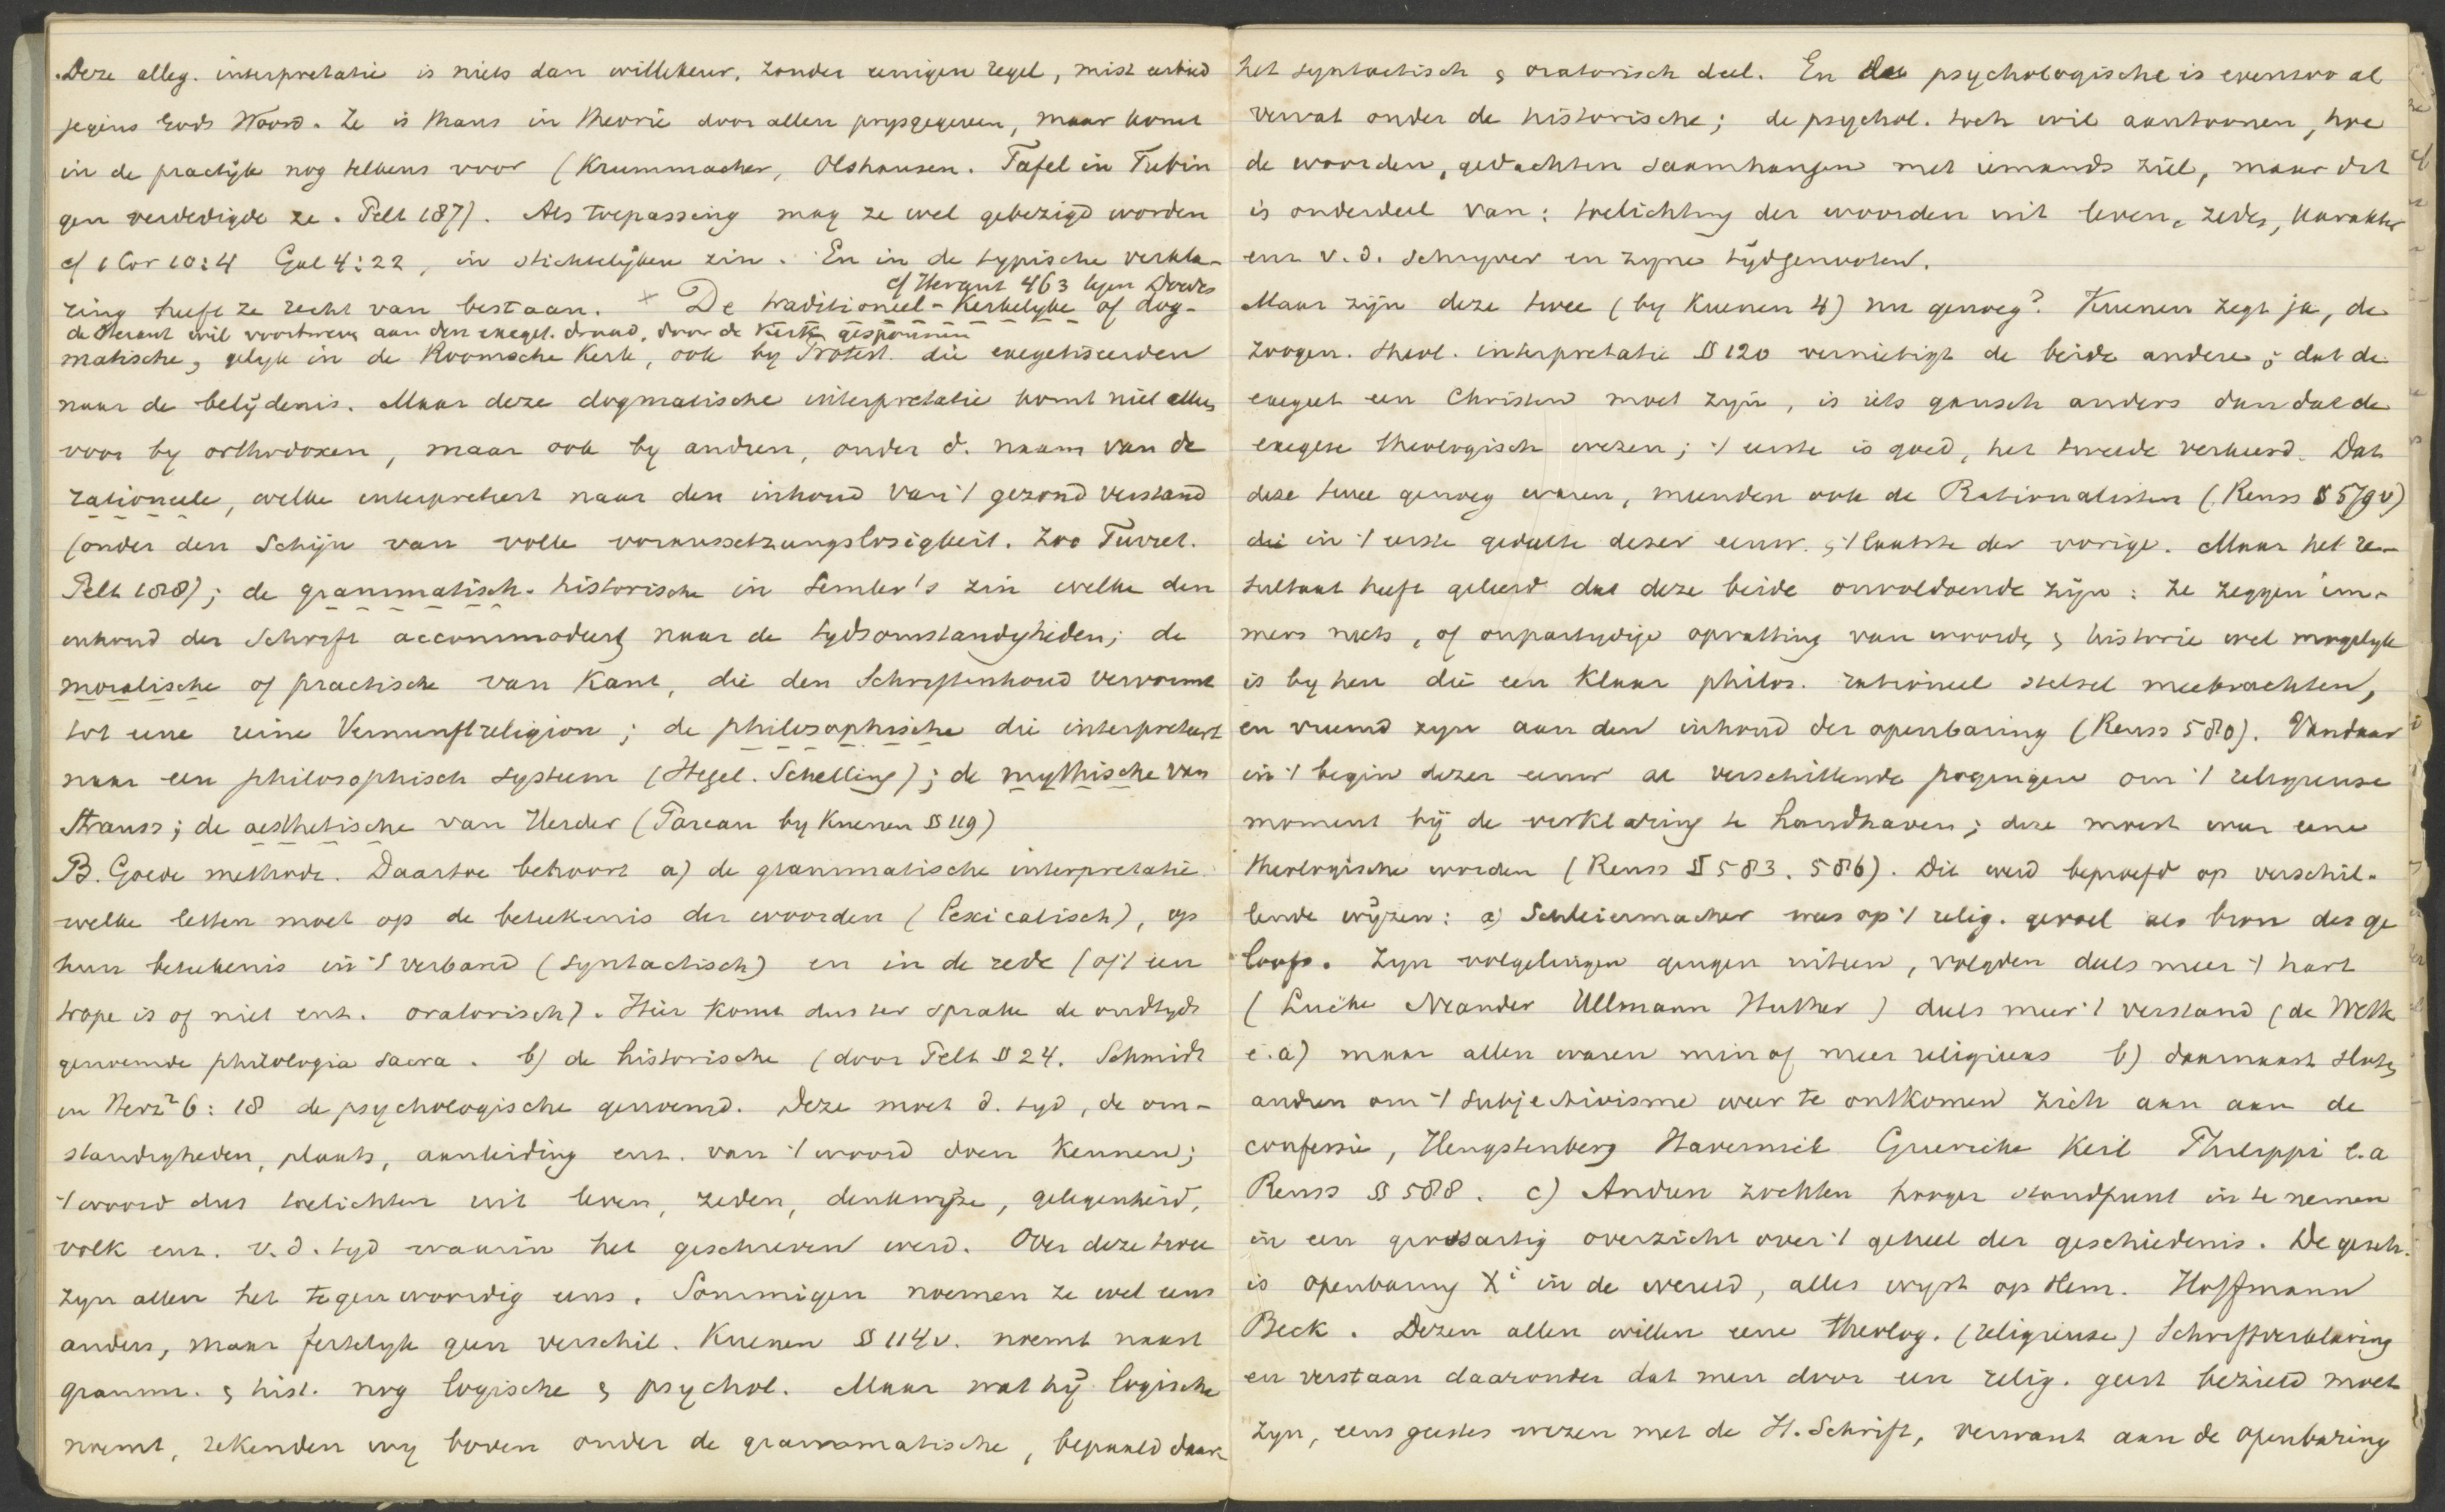 Deze alleg. interpretatie is niets dan willekeur, zonder eenigen regel, mist eerbied
jegens Gods Woord. Ze is thans in theorie door allen prysgegeven, maar komt
in de practijk nog telkens voor (Krummacher, Olshausen. Tafel in Tubin
gen verdedigde ze. Pelt 187). Als toepassing mag ze wel gebezigd worden
cf 1 Cor 10:4 Gal 4:22, in stichtelijken zin. En in de typische verkla-
cf Heraut 463 tegen Doedes
ring heeft ze recht van bestaan. × De traditioneel-Kerkelyke of dog-
de Heraut wil voortweven aan den exeget. draad, door de Kerk gesponnen
matische, gelyk in de Roomsche Kerk, ook by Protest. die exegetiseerden
naar de belydenis. Maar deze dogmatische interpretatie komt niet alleen
voor by orthodoxen, maar ook by andren, onder d. naam van de
rationeele, welke interpreteert naar den inhoud van 't gezond verstand
(onder den Schijn van volle voraussetzungslosigkeit. Zoo Turret.
Pelt 188); de grammatisch-historische in Semler's zin welke den
inhoud der Schrift accommodeert naar de tydsomstandigheden; de
moralische of practische van Kant, die den Schriftinhoud vervormt
tot eene reine Vernunftreligion; de philosophische die interpreteert
naar een philosophisch systeem (Hegel. Schelling); de mythische van
Strauss; de aesthetische van Herder (Pareau by Kuenen § 119)
B. Goede methode. Daartoe behoort a) de grammatische interpretatie
welke letten moet op de beteekenis der woorden (lexicalisch), op
hun beteekenis in 't verband (syntactisch) en in de rede (of 't een
trope is of niet enz. oratorisch). Hier komt dus ter sprake de oudtyds
genoemde philologia sacra. b) de historische (door Pelt § 24. Schmidt
in Herz² 6:18 de psychologische genoemd. Deze moet d. tyd, de om-
standigheden, plaats, aanleiding enz. van 't woord doen Kennen;
't woord dus toelichten uit leven, zeden, denkwijze, gelegenheid,
volk enz. v. d. tyd waarin het geschreven werd. Over deze twee
zyn allen het tegenwoordig eens. Sommigen noemen ze wel eens
anders, maar feitelyk geen verschil. Kuenen § 114v. noemt naast
gramm. & hist. nog logische & psychol. Maar wat hij logische
noemt, rekenden wy boven onder de grammatische, bepaald daar
het syntactisch & oratorisch deel. En de psychologische is evenzoo al
vervat onder de historische; de psychol. toch wil aantoonen, hoe
de woorden, gedachten saamhangen met iemands ziel, maar dit
is onderdeel van: toelichting der woorden uit leven, zeden, karakter
enz v. d. schryver en zyne tydgenooten.
Maar zijn deze twee (by Kuenen 4) nu genoeg? Kuenen zegt ja, de
zoogen. theol. interpretatie § 120 vernietigt de beide andere; dat de
exegeet een Christen moet zijn, is iets gansch anders dan dat de
exegese theologisch wezen; 't eerste is goed, het tweede verkeerd. Dat
deze twee genoeg waren, meenden ook de Rationalisten (Reuss § 579v)
die in 't eerste gedeelte dezer eeuw & 't laatste der vorige. Maar het re-
sultaat heeft geleerd dat deze beide onvoldoende zijn: ze zeggen im-
mers niets, of onpartydige opvatting van woorden & historie wel mogelyk
is by hen die een Klaar philos. rationeel stelsel meebrachten,
en vreemd zyn aan den inhoud der openbaring (Reuss 580). Vandaar
in 't begin dezer eeuw al verschillende pogingen om 't religieuse
moment bij de verklaring te handhaven; deze moest weer eene
theologische worden (Reuss § 583. 586). Dit werd beproefd op verschil-
lende wijzen: a) Schleiermacher wees op 't relig. gevoel als bron des ge
loofs. Zyn volgelingen gingen uiteen, volgden deels meer 't hart
(Lücke Neander Ullmann Huther) deels meer 't verstand (de Wette
e.a) maar allen waren min of meer religieus b) daarnaast sloten
andren om 't subjectivisme weer te ontkomen zich aan aan de
confessie, Hengstenberg Havernick Guericke Keil Philippi e.a
Reuss § 588. c) Andren zochten hooger standpunt in te nemen
in een grootsartig overzicht over 't geheel der geschiedenis. De gesch.
is openbaring Xⁱ in de wereld, alles wyst op Hem. Hoffmann
Beck. Dezen allen willen eene theolog. (religieuse) Schriftverklaring
en verstaan daaronder dat men door een relig. geest bezield moet
zyn, eens geestes wezen met de H. Schrift, verwant aan de openbaring